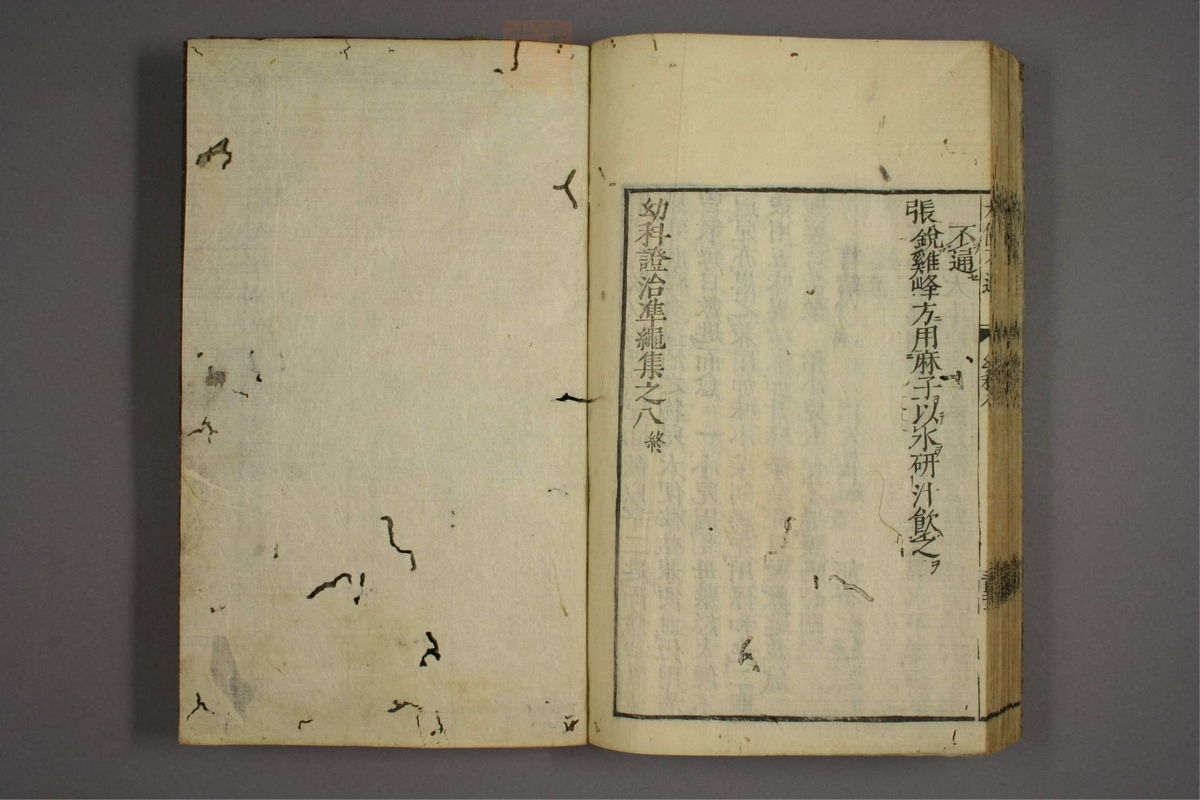 不通
張銳雞峰方用麻子以水研汁飲之
幼科證治準繩集之八 終